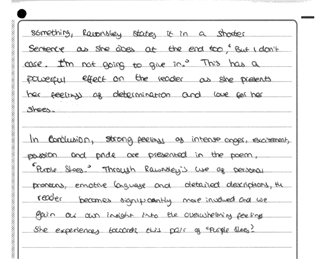 something, Rawnsley states it in a shorter
sentence as she does at the end too, "But I don't
care. I'm not going to give in." This has a
powerful effect on the reader as she presents
her feelings of determination and love for her
shoes.
In conclusion, strong feelings of intense anger, excitement,
passion and pride are presented in the poem,
"Purple Shoes." Through Rawnsley's use of personal
pronouns, emotive language and detailed descriptions, the
reader becomes significantly more involved and we
gain our own insight into the overwhelming feelings
she experiences towards this pair of "Purple Shoes".